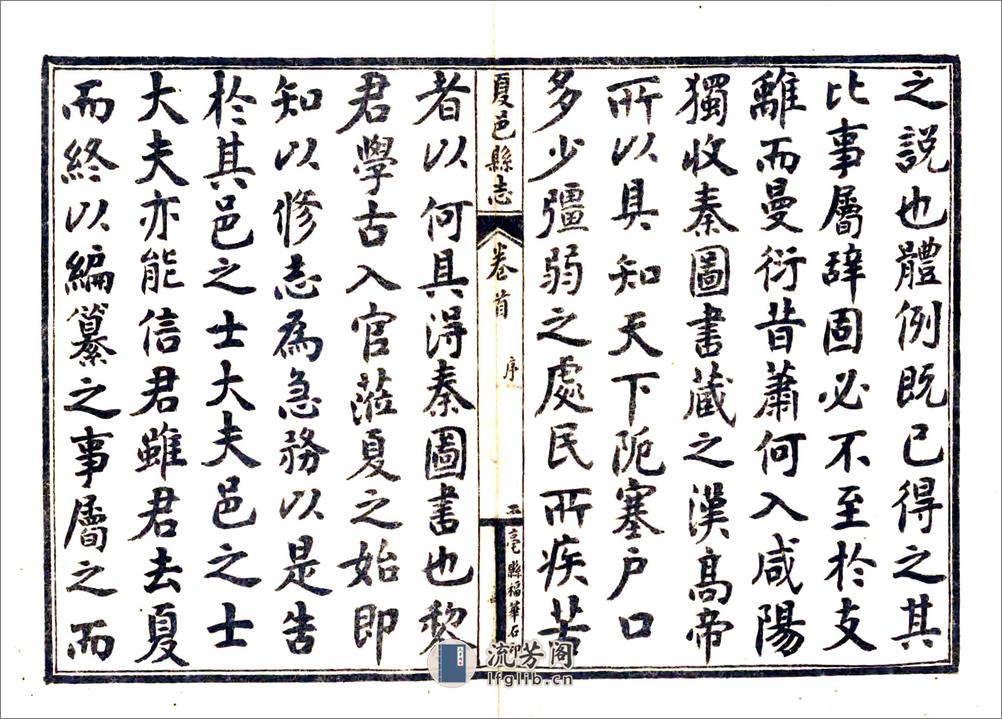 之說也體例既已得之其
比事屬辭固必不至於支
離而曼衍昔蕭何入咸陽
獨收秦圖書藏之漢高帝
所以具知天下阨塞户口
多少彊弱之處民所疾苦
夏邑縣志 卷首 序 二 亳縣福華石印
者以何具得秦圖書也黎
君學古入官蒞夏之始即
知以修志為急務以是告
於其邑之士大夫邑之士
大夫亦能信君雖君去夏
而終以編纂之事屬之而
流芳阁
lfglib.cn